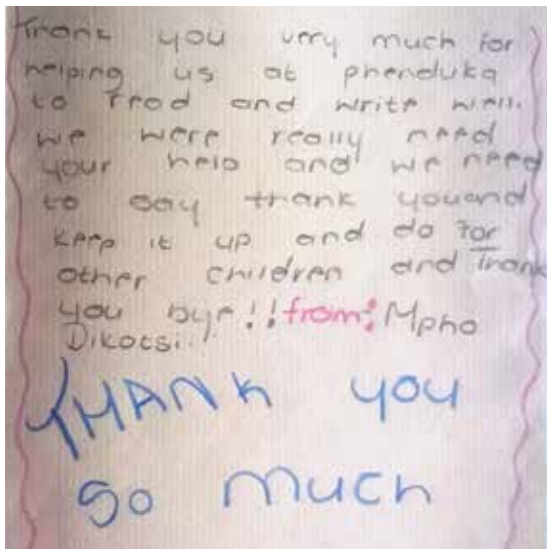 Thank you very much for
helping us at phenduka
to read and write well.
we were really need
your help and we need
to say thank youand
keep it up and do for
other children and Thank
you bye!! from: Mpho
Dikotsi..
THANK you
so much